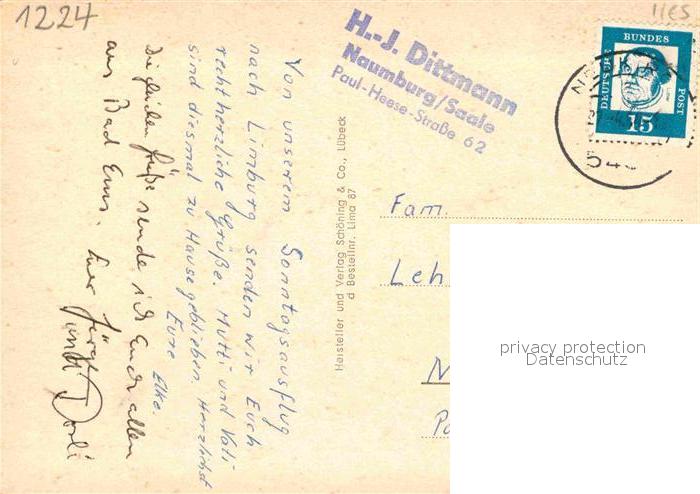 1224
11ES
H.-J. Dittmann
Naumburg/Saale
Paul-Heese-Straße 62
DEUTSCHE
BUNDES
POST
15
54
Von unserem Sonntagsausflug
nach Limburg senden wir Euch
recht herzliche Grüße. Mutti und Vati
sind diesmal zu Hause geblieben. Herzlichst
Eure Elke.
Die gleichen Grüße sende ich Euch allen
aus Bad Ems. Euer Jürgen
und Dorli
Hersteller und Verlag Schöning & Co., Lübeck
d Bestellnr. Lima 87
Fam.
Leh
N
Pa
privacy protection
Datenschutz